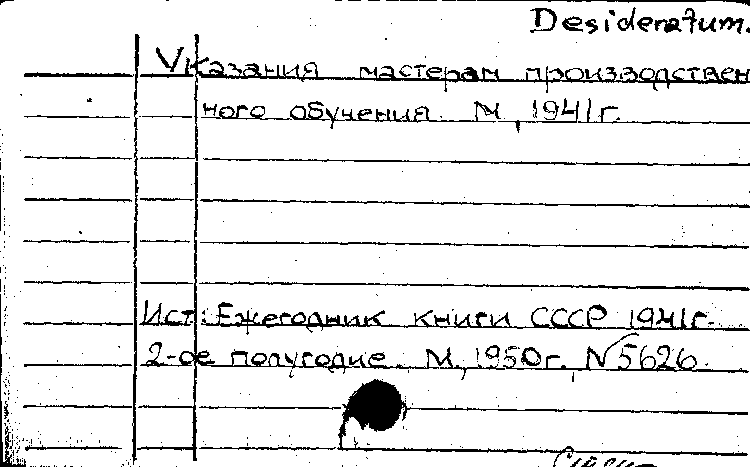 Desideratum.
Указания мастерам производствен
ного обучения. М, 1941г.
Ист: Ежегодник книги СССР 1941г.
2-ое полугодие. М, 1950г., №5626.